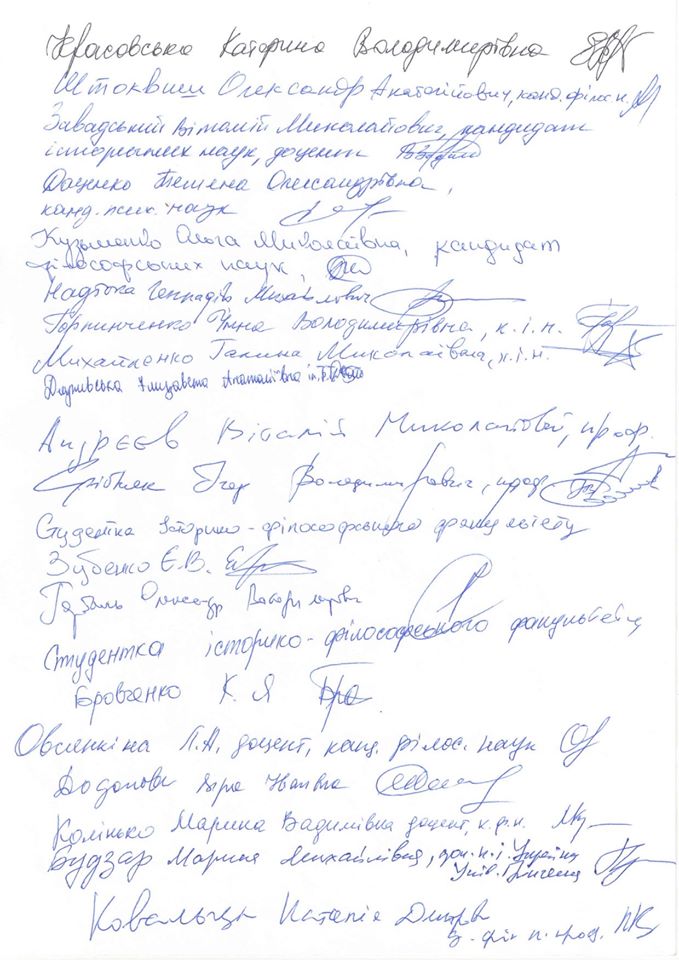 Красовська Катерина Володимирівна
Штоквиш Олександр Анатолійович, канд. філос. н.
Завадський Віталій Миколайович, кандидат
історичних наук, доцент
Даценко Тетяна Олександрівна,
канд. псих. наук
Кузьменко Ольга Миколаївна, кандидат
філософських наук,
Надтока Геннадій Михайлович
Горпинченко Інна Володимирівна, к.і.н.
Михайленко Галина Миколаївна, к.і.н.
Єлизавета Анатоліївна
Андрєєв Віталій Миколайович, проф.
Срібняк Ігор Володимирович, проф
Студентка Історико-філософського факультету
Зубенко Є.В.
Олександр
Студентка історико-філософського факультету
Бровченко К. Я
Овсянкіна Л.А. доцент, канд. філос. наук
Додонова Віра Іванівна
Колінько Марина Вадимівна доцент, к.ф.н.
Будзар Марина Михайлівна, доц. к. і. України
Унів. Грінченка
Наталія